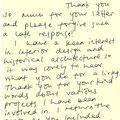 Thank you
so much for your letter
and please forgive such
a late response!
I have a keen interest
in interior design and
historical architecture so
it was lovely to hear
what you do for a living.
Thank you for your kind
words about various
projects I have been
involved in. I return the
you included